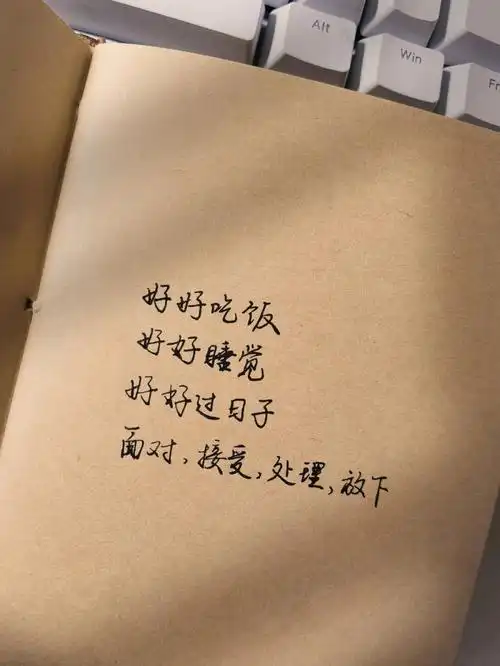 Alt
Win
Fn
好好吃饭
好好睡觉
好好过日子
面对,接受,处理,放下